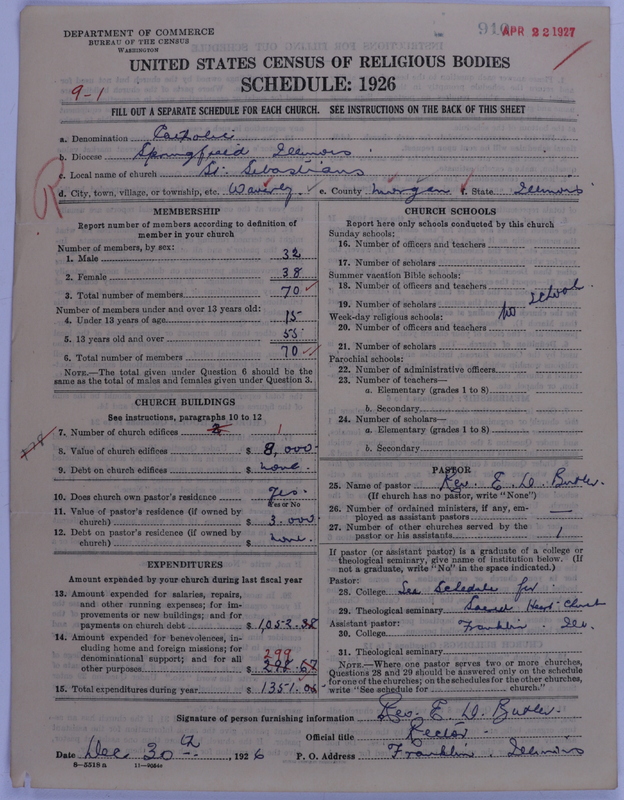 DEPARTMENT OF COMMERCE
BUREAU OF THE CENSUS
WASHINGTON
910 APR 22 1927
UNITED STATES CENSUS OF RELIGIOUS BODIES
SCHEDULE: 1926
9-1
FILL OUT A SEPARATE SCHEDULE FOR EACH CHURCH. SEE INSTRUCTIONS ON THE BACK OF THIS SHEET
a. Denomination Catholic
b. Diocese Springfield Illinois
c. Local name of church St. Sebastians
d. City, town, village, or township, etc. Waverly. e. County Morgan f. State Illinois
R
MEMBERSHIP
Report number of members according to definition of
member in your church
Number of members, by sex:
1. Male 32
2. Female 38
3. Total number of members 70
Number of members under and over 13 years old:
4. Under 13 years of age 15
5. 13 years old and over 55
6. Total number of members 70
NOTE.—The total given under Question 6 should be
the same as the total of males and females given under Question 3.
CHURCH BUILDINGS
See instructions, paragraphs 10 to 12
7. Number of church edifices 2 1
8. Value of church edifices $ 8,000
9. Debt on church edifices $ none.
10. Does church own pastor's residence Yes.
Yes or No
11. Value of pastor's residence (if owned by
church) $ 3.000
12. Debt on pastor's residence (if owned by
church) none.
EXPENDITURES
Amount expended by your church during last fiscal year
13. Amount expended for salaries, repairs,
and other running expenses; for im-
provements or new buildings; and for
payments on church debt $ 1,052.38
14. Amount expended for benevolences, in-
cluding home and foreign missions; for
denominational support; and for all 299
other purposes $ 298.67
15. Total expenditures during year $ 1351.05
CHURCH SCHOOLS
Report here only schools conducted by this church
Sunday schools:
16. Number of officers and teachers
17. Number of scholars
Summer vacation Bible schools:
18. Number of officers and teachers
19. Number of scholars no school.
Week-day religious schools:
20. Number of officers and teachers
21. Number of scholars
Parochial schools:
22. Number of administrative officers
23. Number of teachers—
a. Elementary (grades 1 to 8)
b. Secondary
24. Number of scholars—
a. Elementary (grades 1 to 8)
b. Secondary
PASTOR
25. Name of pastor Rev. E. D. Butler.
(If church has no pastor, write "None")
26. Number of ordained ministers, if any, em-
ployed as assistant pastors —
27. Number of other churches served by the
pastor or his assistants 1
If pastor (or assistant pastor) is a graduate of a college or
theological seminary, give name of institution below. (If
not a graduate, write "No" in the space indicated.)
Pastor:
28. College See Schedule for
29. Theological seminary Sacred Heart Church
Assistant pastor:
30. College Franklin. Ill.
31. Theological seminary
NOTE.—Where one pastor serves two or more churches,
Questions 28 and 29 should be answered only on the schedule
for one of the churches; on the schedules for the other churches,
write "See schedule for church."
Signature of person furnishing information Rev. E. D. Butler.
Official title Rector.
Date Dec 30th, 1926 P. O. Address Franklin. Illinois
8-5518 a